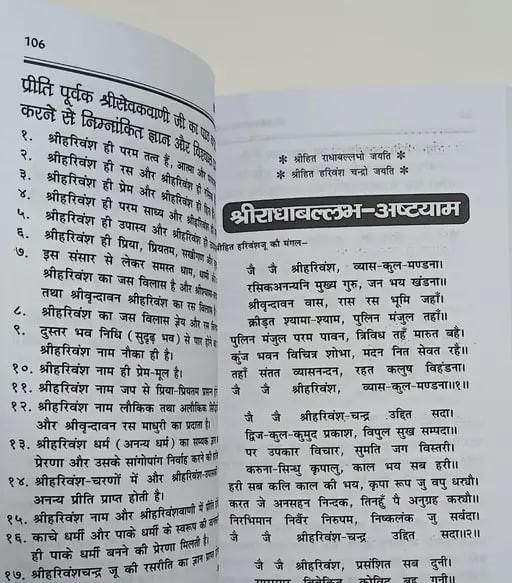 106
प्रीति पूर्वक श्रीसेवकवाणी जी का पाठ
करने से निम्नांकित ज्ञान और विश्वास
१. श्रीहरिवंश ही परम तत्व हैं, आत्मा और
२. श्रीहरिवंश ही रस और श्रीहरिवंश ही
३. श्रीहरिवंश ही प्रेम और श्रीहरिवंश ही
४. श्रीहरिवंश ही परम साध्य और श्रीहरिवंश ही
५. श्रीहरिवंश ही उपास्य और श्रीहरिवंश ही
६. श्रीहरिवंश ही प्रिया, प्रियतम, सखीगण और
७. इस संसार से लेकर समस्त धाम, धामी
श्रीहरिवंश का जस विलास है और श्रीश्यामा
तथा श्रीवृन्दावन श्रीहरिवंश का रस विलास
८. श्रीहरिवंश का जस विलास ज्ञेय और रस
९. दुस्तर भव निधि (सुदृढ़ भव) से पार होने
श्रीहरिवंश नाम नौका ही है।
१०. श्रीहरिवंश नाम ही प्रेम-मूल है।
११. श्रीहरिवंश नाम जप से प्रिया-प्रियतम प्रसन्न
१२. श्रीहरिवंश नाम लौकिक तथा अलौकिक
और श्रीवृन्दावन रस माधुरी का प्रदाता है।
१३. श्रीहरिवंश धर्म (अनन्य धर्म) का सम्यक
प्रेरणा और उसके सांगोपांग निर्वाह करने की
१४. श्रीहरिवंश-चरणों में और श्रीहरिवंश
अनन्य प्रीति प्राप्त होती है।
१५. श्रीहरिवंश नाम और श्रीहरिवंशवाणी में प्रीति
१६. काचे धर्मी और पाके धर्मी के स्वरूप की
ही पाके धर्मी बनने की प्रेरणा मिलती है।
१७. श्रीहरिवंशचन्द्र जू की रसरीति का ज्ञान
* श्रीहित राधाबल्लभो जयति *
* श्रीहित हरिवंश चन्द्रो जयति *
श्रीराधाबल्लभ-अष्टयाम
श्रीहित हरिवंशजू की मंगल–
जै जै श्रीहरिवंश, व्यास-कुल-मण्डना।
रसिकअनन्यनि मुख्य गुरु, जन भय खंडना॥
श्रीवृन्दावन वास, रास रस भूमि जहाँ।
क्रीड़त श्यामा-श्याम, पुलिन मंजुल तहाँ॥
पुलिन मंजुल परम पावन, त्रिविध तहँ मारुत बहै।
कुंज भवन विचित्र शोभा, मदन नित सेवत रहै॥
तहाँ संतत व्यासनन्दन, रहत कलुष विहंडना।
जै जै श्रीहरिवंश, व्यास-कुल-मण्डना॥१॥
जै जै श्रीहरिवंश-चन्द्र उद्दित सदा।
द्विज-कुल-कुमुद प्रकाश, विपुल सुख सम्पदा॥
पर उपकार विचार, सुमति जग विस्तरी।
करुना-सिन्धु कृपालु, काल भय सब हरी॥
हरी सब कलि काल की भय, कृपा रूप जु वपु धर्यौ॥
करत जे अनसहन निन्दक, तिनहुँ पै अनुग्रह कर्यौ॥
निरभिमान निर्वैर निरुपम, निष्कलंक जु सर्वदा।
जै जै श्रीहरिवंश-चन्द्र उद्दित सदा॥२॥
जै जै श्रीहरिवंश, प्रसंशित सब दुनी।